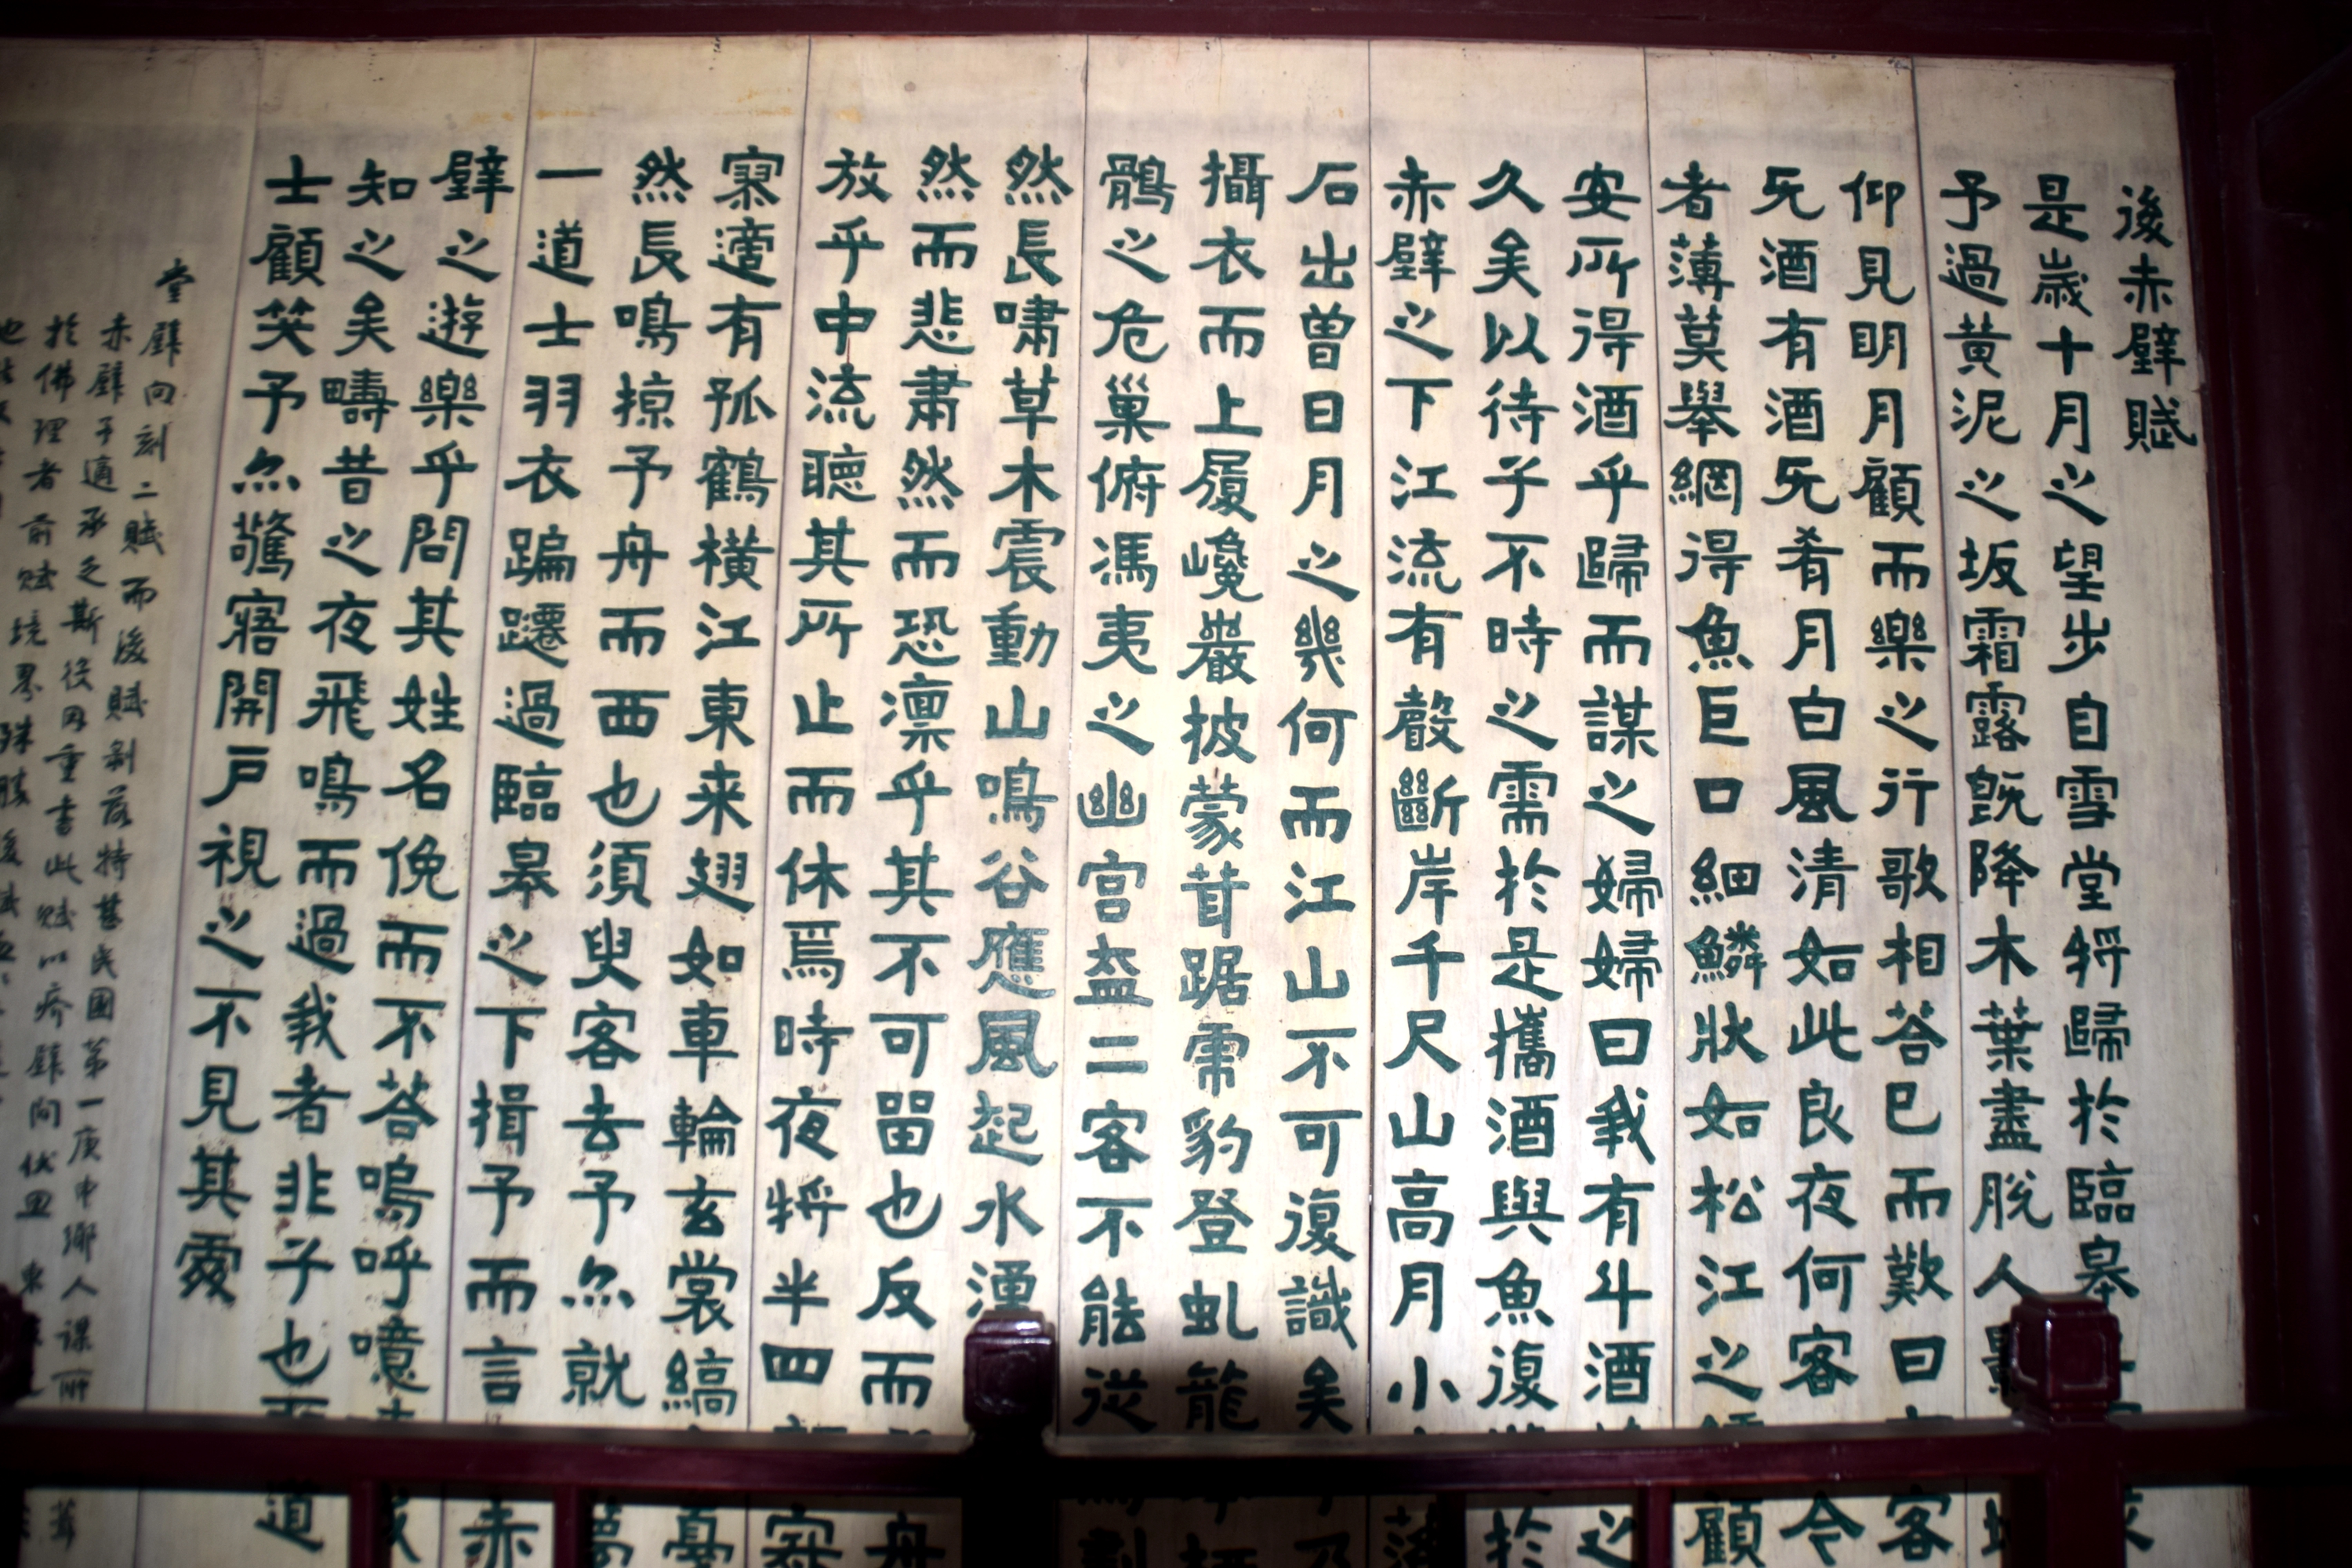 後赤壁賦
是歲十月之望步自雪堂將歸於臨皋
予過黃泥之坂霜露既降木葉盡脫人影
仰見明月顧而樂之行歌相荅已而歎曰客
无酒有酒无肴月白風清如此良夜何客今
者薄莫舉網得魚巨口細鱗狀如松江之鱸顧
安所得酒乎歸而謀之婦婦曰我有斗酒之
久矣以待子不時之需於是攜酒與魚復遊於
赤壁之下江流有聲斷岸千尺山高月小落
石出曾日月之幾何而江山不可復識矣予乃
攝衣而上履巉巖披蒙茸踞虎豹登虯龍
鶻之危巢俯馮夷之幽宮盍二客不能從焉劃
然長嘯草木震動山鳴谷應風起水湧
然而悲肅然而恐凜乎其不可留也反而舟
放乎中流聽其所止而休焉時夜將半四顧寂
寥適有孤鶴橫江東来翅如車輪玄裳縞戛
然長鳴掠予舟而西也須臾客去予尒就夢
一道士羽衣蹁躚過臨皋之下揖予而言赤
壁之遊樂乎問其姓名俛而不荅嗚呼噫嘻我
知之矣疇昔之夜飛鳴而過我者非子也耶道
士顧笑予尒驚寤開戶視之不見其處
堂壁向刻二賦而後賦剝落特甚民國第一庚申鄉人謀所葺
赤壁予適承乏斯役因重書此賦以疥壁向
於佛理者前賦境界殊勝後賦